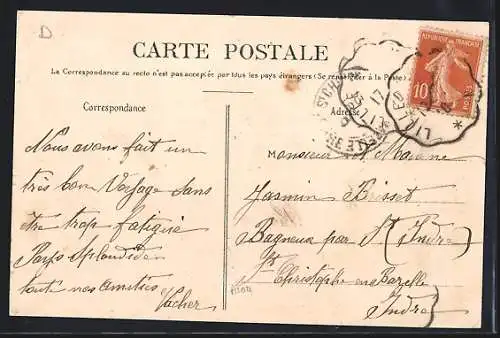 D
CARTE POSTALE
La Correspondance au recto n'est pas acceptée par tous les pays étrangers (Se renseigner à la Poste)
REPUBLIQUE FRANÇAISE
10
POSTES
Correspondance
Adresse
Nous avons fait un
très bon Voyage sans
être trop fatigué
Pays splendides
toute nos amitiés
Vacher
Monsieur et Madame
Jasmin Brisset
Bagneux par St (Indre)
St Christophe en Bazelle
Indre